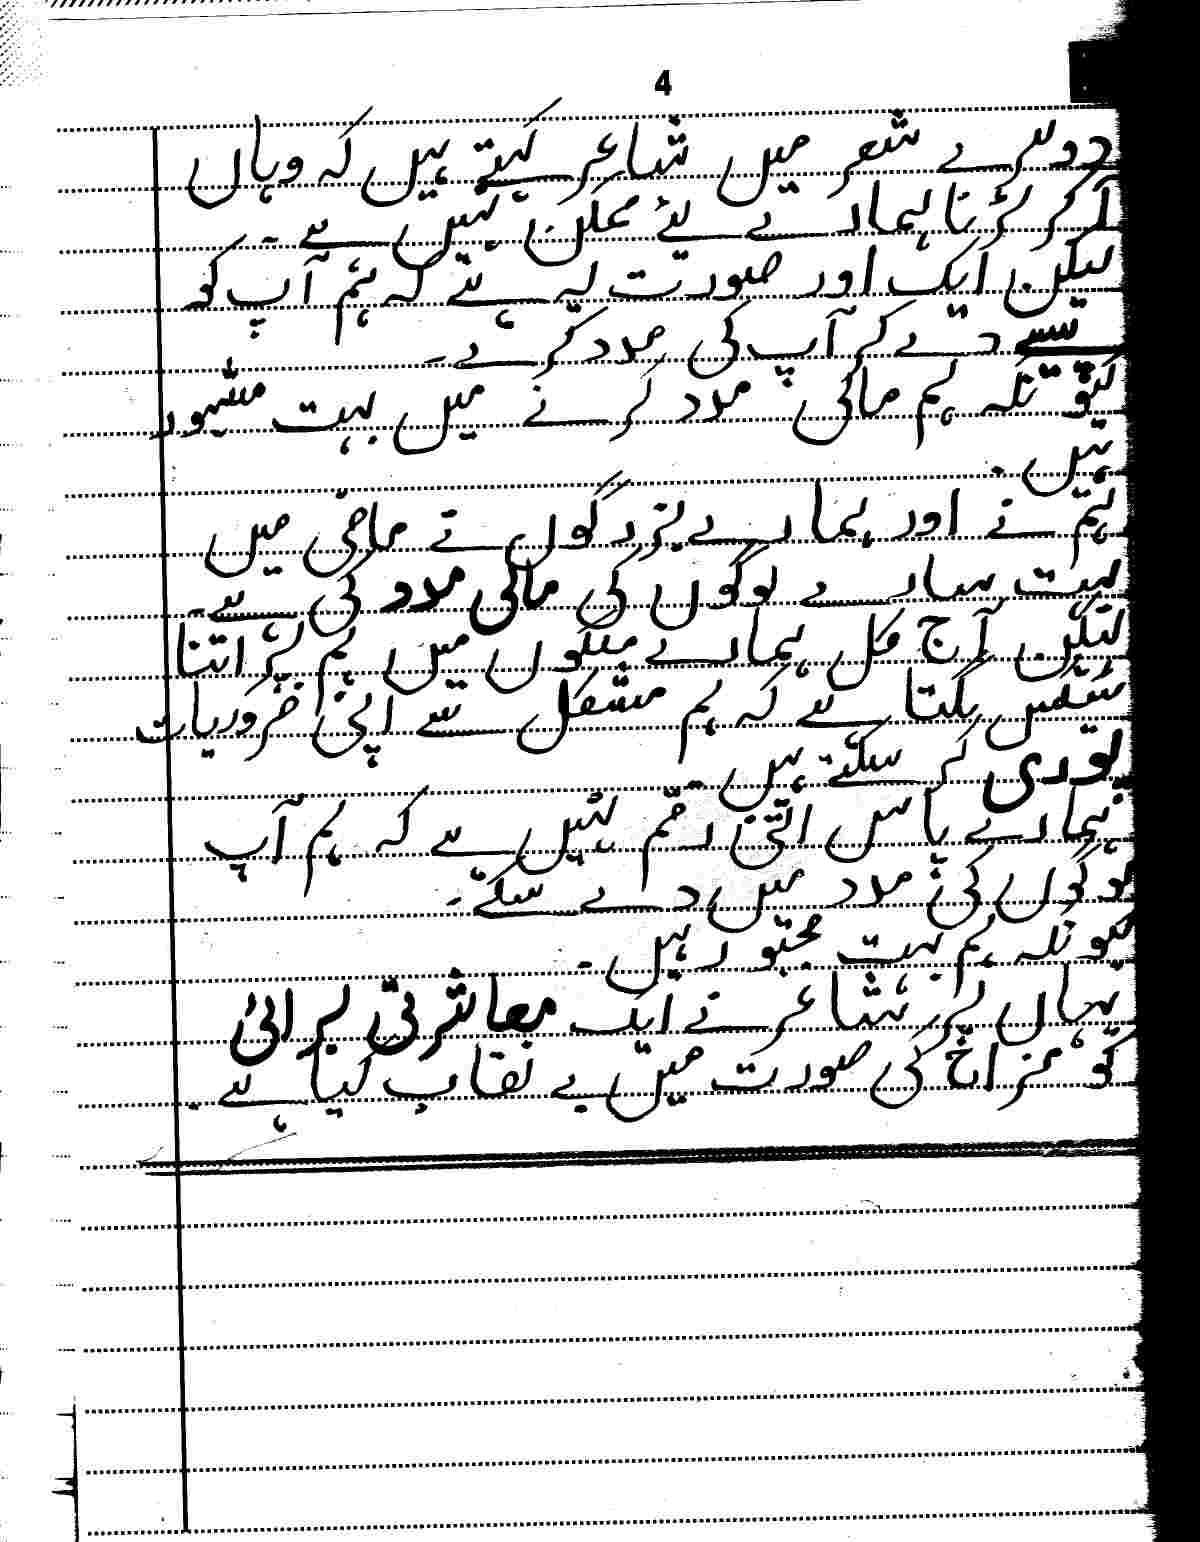 4
دوسرے شعر میں شاعر کہتے ہیں کہ وہاں
آکر لڑنا ہمارے لیئے ممکن نہیں ہے۔
لیکن ایک اور صورت یہ ہے کہ ہم آپ کو
پیسے دے کر آپ کی مدد کرے۔
کیونکہ ہم مالی مدد کرنے میں بہت مشہور
ہیں۔
ہم نے اور ہمارے بزرگوں نے ماضی میں
بہت سارے لوگوں کی مالی مدد کی ہے۔
لیکن آج کل ہمارے ملکوں میں ہم پر اتنا
ٹیکس لگتا ہے کہ ہم مشکل سے اپنی ضروریات
پوری کر سکتے ہیں۔
ہمارے پاس اتنی رقم نہیں ہے کہ ہم آپ
لوگوں کی مدد میں دے سکے۔
کیونکہ ہم بہت مجبور ہیں۔
یہاں پر شاعر نے ایک معاشرتی برائی
کو مزاخ کی صورت میں بے نقاب کیا ہے۔